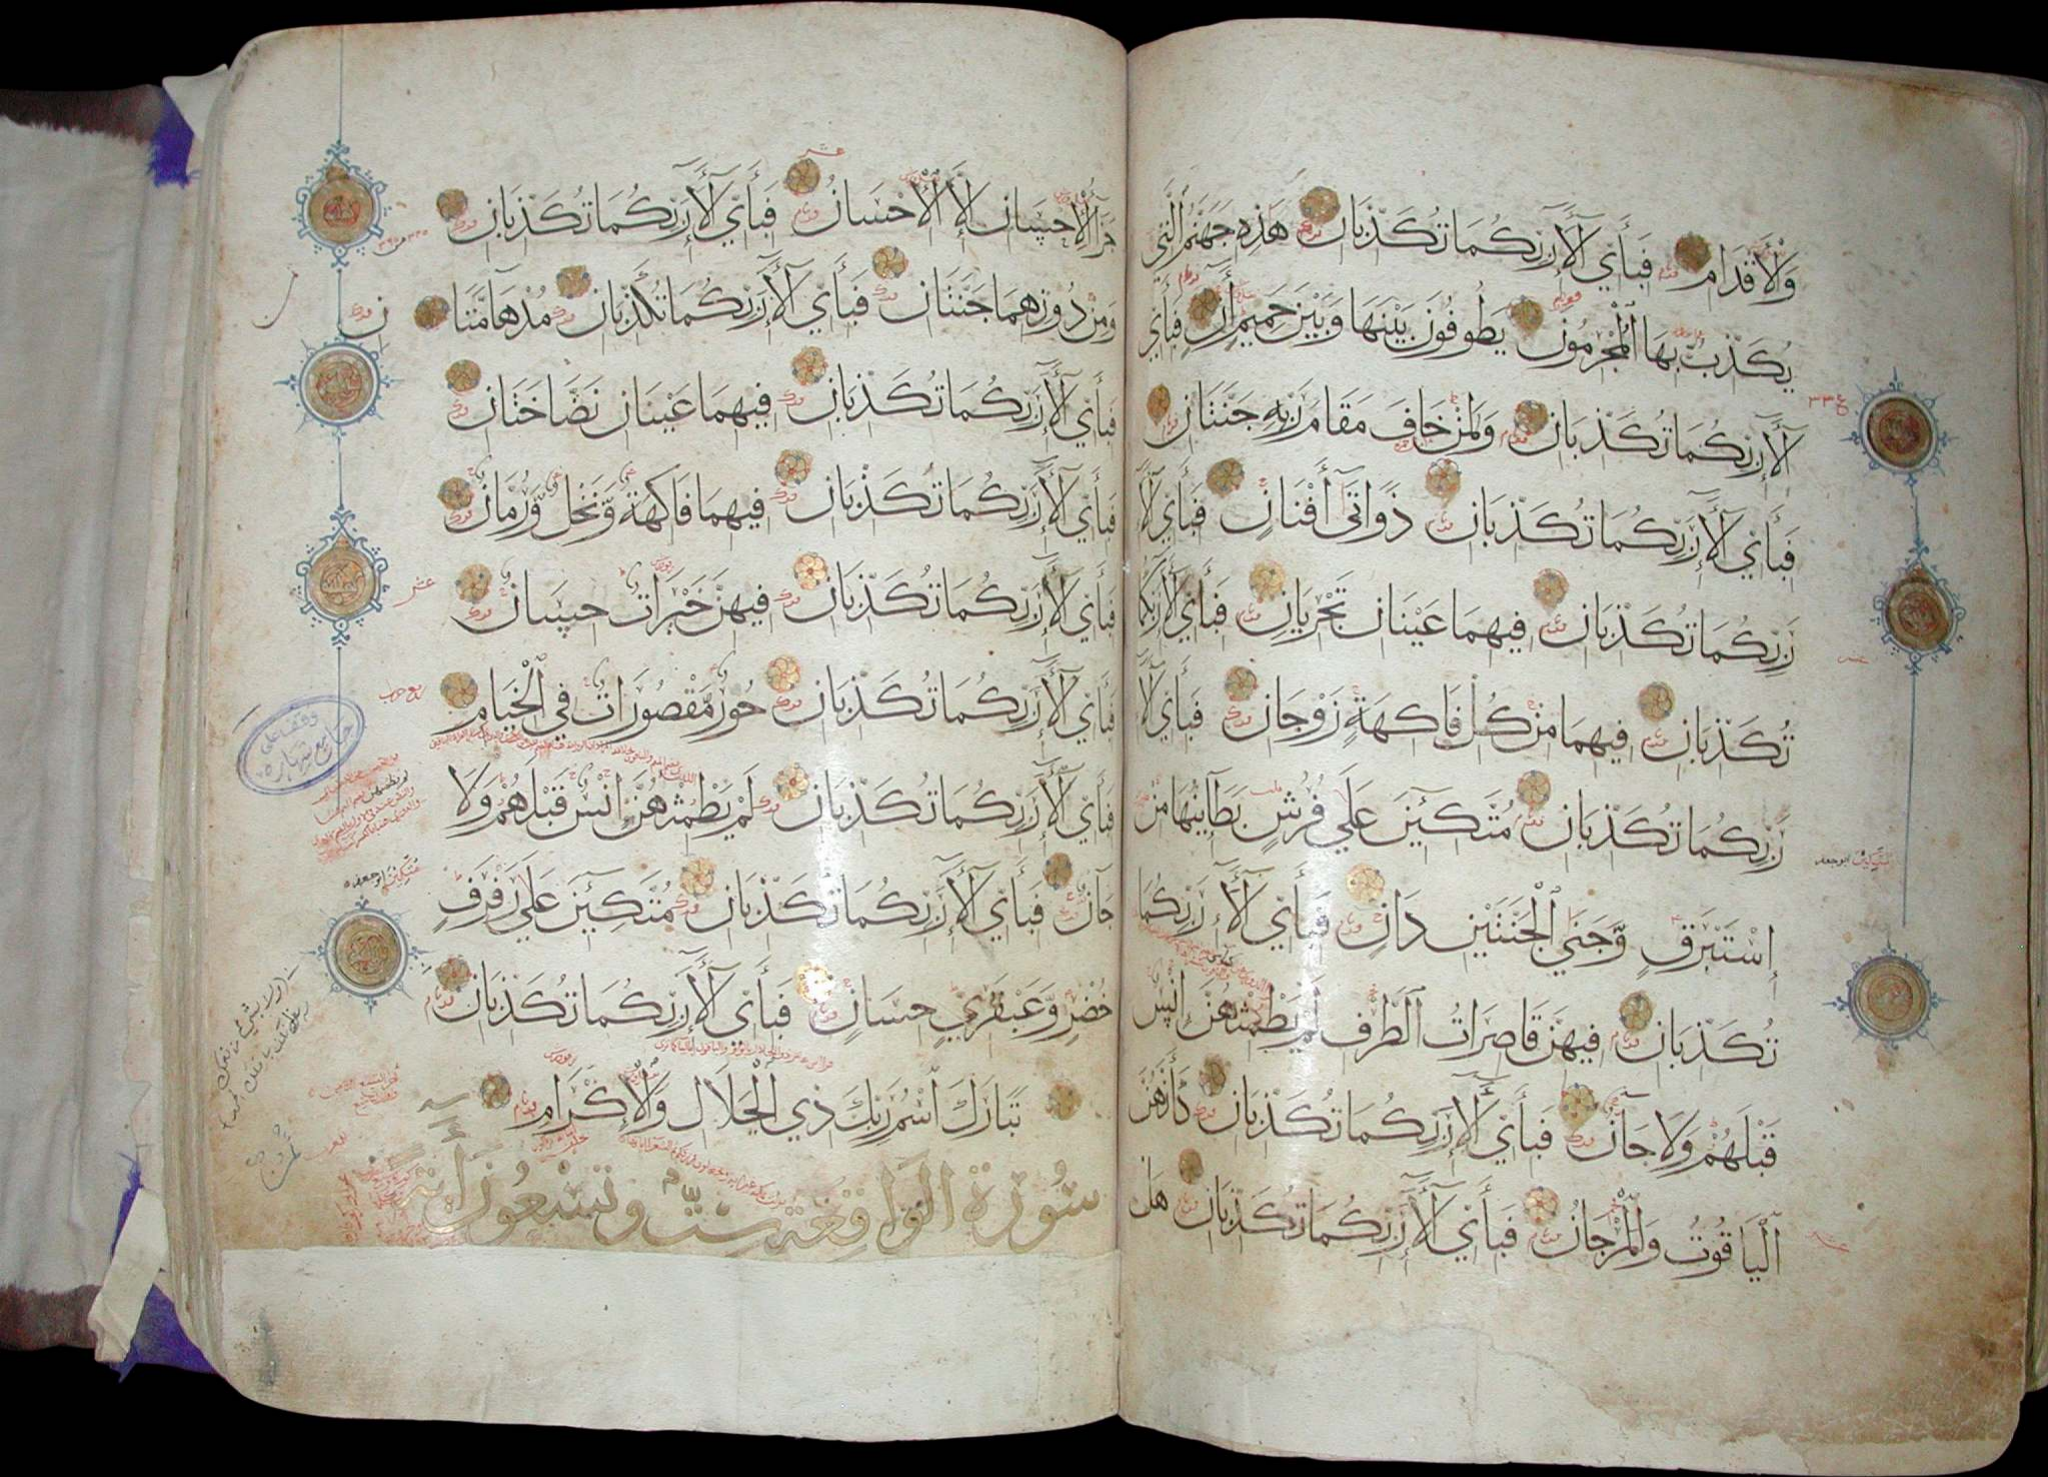 وَالْأَقْدَامِ فَبِأَيِّ آلَاءِ رَبِّكُمَا تُكَذِّبَانِ هَٰذِهِ جَهَنَّمُ الَّتِي
يُكَذِّبُ بِهَا الْمُجْرِمُونَ يَطُوفُونَ بَيْنَهَا وَبَيْنَ حَمِيمٍ آنٍ فَبِأَيِّ
آلَاءِ رَبِّكُمَا تُكَذِّبَانِ وَلِمَنْ خَافَ مَقَامَ رَبِّهِ جَنَّتَانِ
فَبِأَيِّ آلَاءِ رَبِّكُمَا تُكَذِّبَانِ ذَوَاتَا أَفْنَانٍ فَبِأَيِّ آلَاءِ
رَبِّكُمَا تُكَذِّبَانِ فِيهِمَا عَيْنَانِ تَجْرِيَانِ فَبِأَيِّ آلَاءِ رَبِّكُمَا
تُكَذِّبَانِ فِيهِمَا مِنْ كُلِّ فَاكِهَةٍ زَوْجَانِ فَبِأَيِّ آلَاءِ
رَبِّكُمَا تُكَذِّبَانِ مُتَّكِئِينَ عَلَى فُرُشٍ بَطَائِنُهَا مِنْ
إِسْتَبْرَقٍ وَجَنَى الْجَنَّتَيْنِ دَانٍ فَبِأَيِّ آلَاءِ رَبِّكُمَا
تُكَذِّبَانِ فِيهِنَّ قَاصِرَاتُ الطَّرْفِ لَمْ يَطْمِثْهُنَّ إِنْسٌ
قَبْلَهُمْ وَلَا جَانٌّ فَبِأَيِّ آلَاءِ رَبِّكُمَا تُكَذِّبَانِ كَأَنَّهُنَّ
الْيَاقُوتُ وَالْمَرْجَانُ فَبِأَيِّ آلَاءِ رَبِّكُمَا تُكَذِّبَانِ هَلْ
جَزَاءُ الْإِحْسَانِ إِلَّا الْإِحْسَانُ فَبِأَيِّ آلَاءِ رَبِّكُمَا تُكَذِّبَانِ
وَمِنْ دُونِهِمَا جَنَّتَانِ فَبِأَيِّ آلَاءِ رَبِّكُمَا تُكَذِّبَانِ مُدْهَامَّتَانِ
فَبِأَيِّ آلَاءِ رَبِّكُمَا تُكَذِّبَانِ فِيهِمَا عَيْنَانِ نَضَّاخَتَانِ
فَبِأَيِّ آلَاءِ رَبِّكُمَا تُكَذِّبَانِ فِيهِمَا فَاكِهَةٌ وَنَخْلٌ وَرُمَّانٌ
فَبِأَيِّ آلَاءِ رَبِّكُمَا تُكَذِّبَانِ فِيهِنَّ خَيْرَاتٌ حِسَانٌ
فَبِأَيِّ آلَاءِ رَبِّكُمَا تُكَذِّبَانِ حُورٌ مَقْصُورَاتٌ فِي الْخِيَامِ
فَبِأَيِّ آلَاءِ رَبِّكُمَا تُكَذِّبَانِ لَمْ يَطْمِثْهُنَّ إِنْسٌ قَبْلَهُمْ وَلَا
جَانٌّ فَبِأَيِّ آلَاءِ رَبِّكُمَا تُكَذِّبَانِ مُتَّكِئِينَ عَلَى رَفْرَفٍ
خُضْرٍ وَعَبْقَرِيٍّ حِسَانٍ فَبِأَيِّ آلَاءِ رَبِّكُمَا تُكَذِّبَانِ
تَبَارَكَ اسْمُ رَبِّكَ ذِي الْجَلَالِ وَالْإِكْرَامِ
سُورَةُ الْوَاقِعَةِ سِتٌّ وَتِسْعُونَ آيَةً
وقف على
جامع شهاره